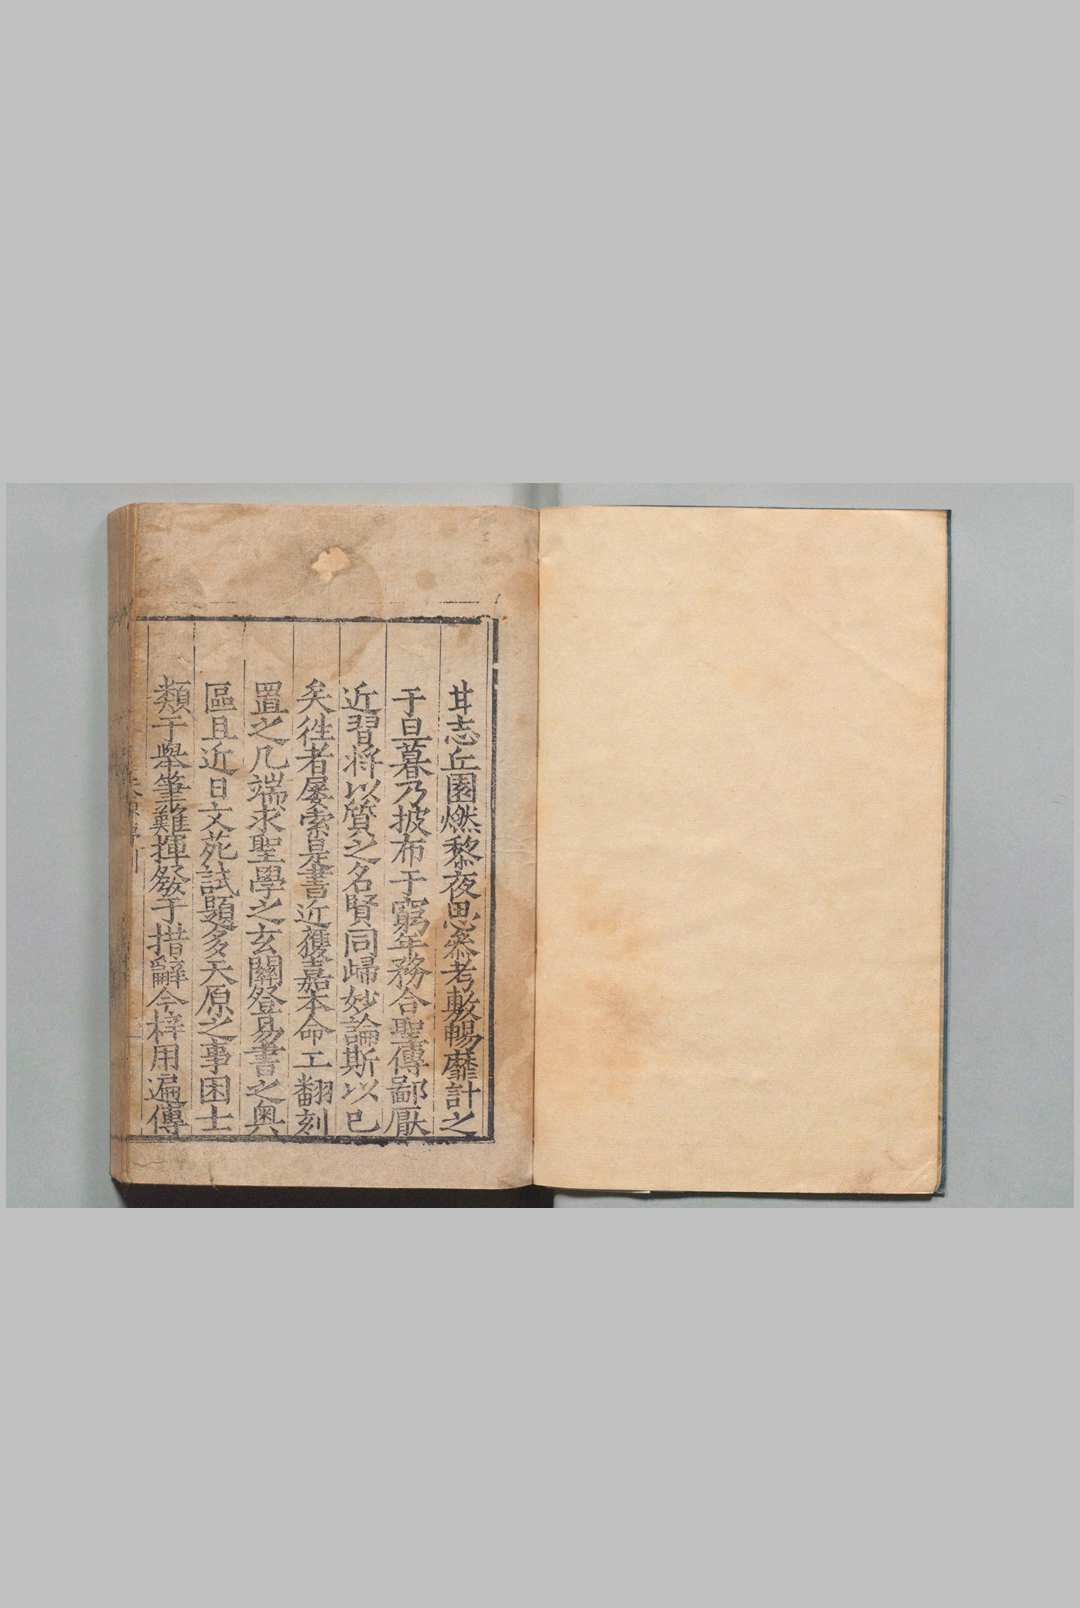 甘志丘園燃藜夜思叅考敷暢靡計之
于旦暮乃披布于窮年務合聖傳鄙厭
近習將以質之名賢同歸妙論斯以已
矣徃者屡索是書近獲嘉本命工翻刻
置之几端求聖學之玄關發易書之奥
區且近日文苑試題多天原之事困士
類于舉筆難揮發于措辭今梓用遍傳